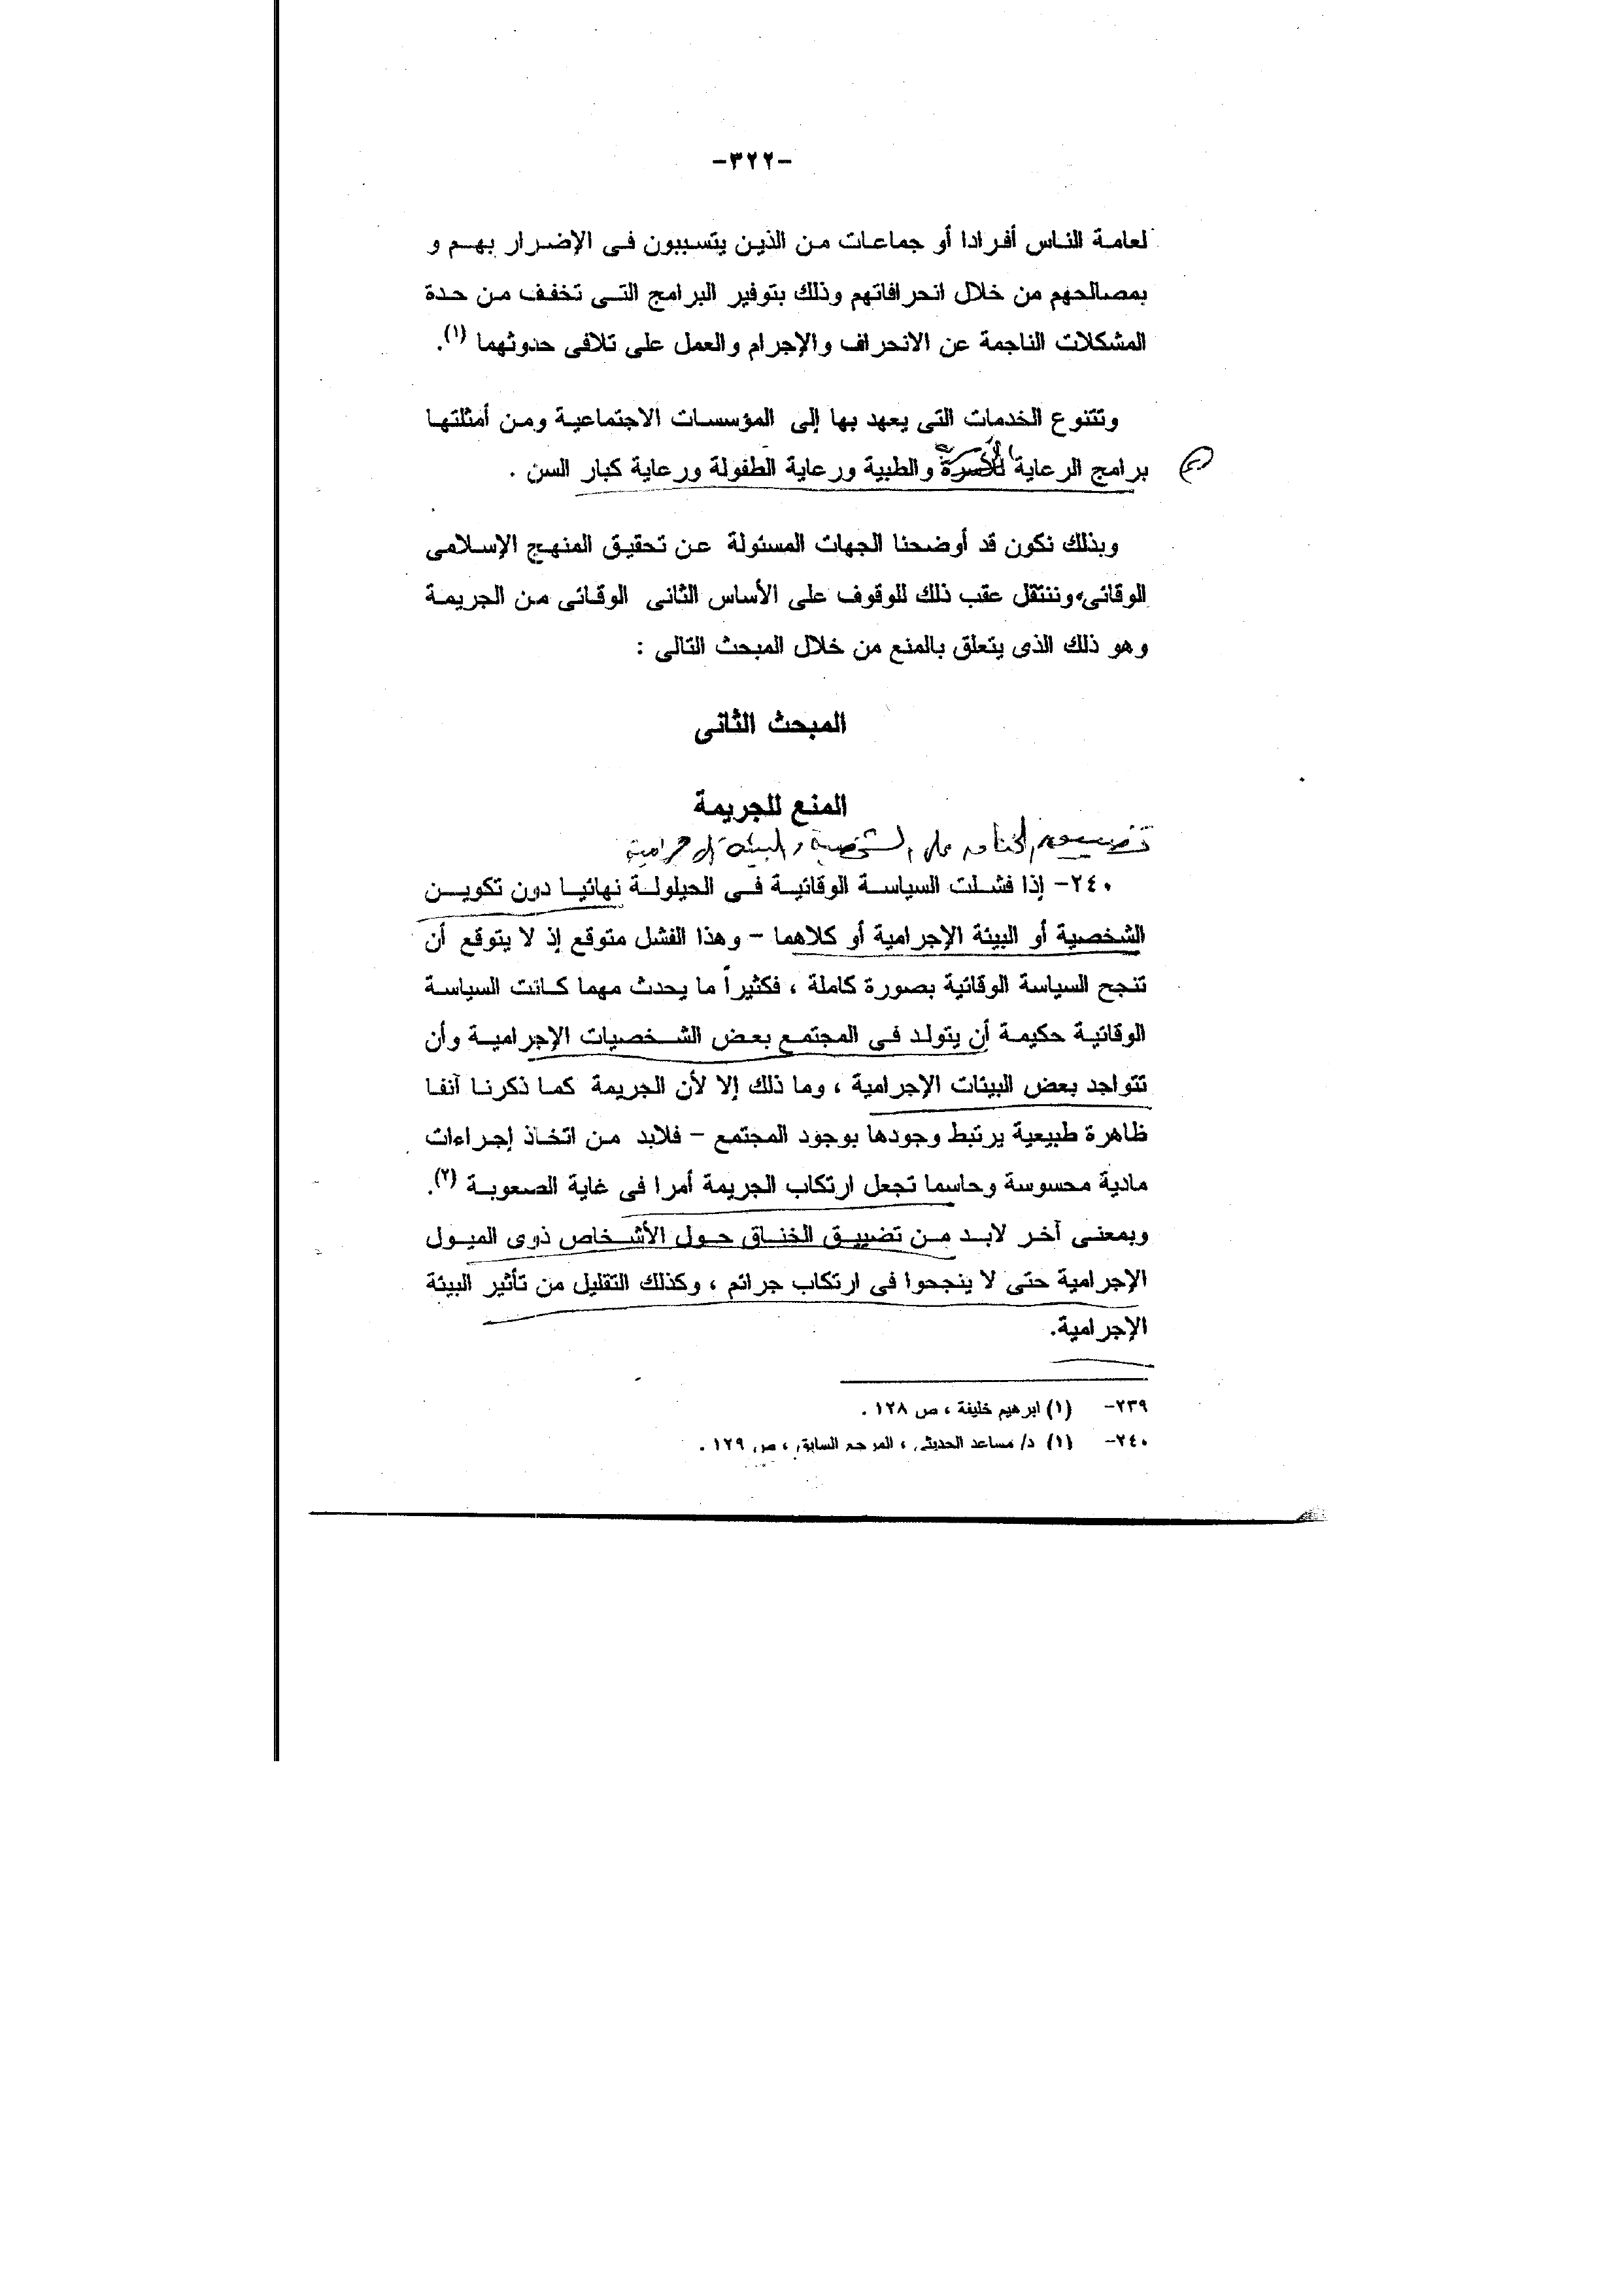 -٣٢٢-
لعامة الناس أفرادا أو جماعات من الذين يتسببون فى الإضرار بهم و
بمصالحهم من خلال انحرافاتهم وذلك بتوفير البرامج التى تخفف من حدة
المشكلات الناجمة عن الانحراف والإجرام والعمل على تلافى حدوثهما (١).
وتتنوع الخدمات التى يعهد بها إلى المؤسسات الاجتماعية ومن أمثلتها
برامج الرعاية للأسرة والطبية ورعاية الطفولة ورعاية كبار السن .
وبذلك نكون قد أوضحنا الجهات المسئولة عن تحقيق المنهج الإسلامى
الوقائى، وننتقل عقب ذلك للوقوف على الأساس الثانى الوقائى من الجريمة
وهو ذلك الذى يتعلق بالمنع من خلال المبحث التالى :
المبحث الثانى
المنع للجريمة
تضييق الخناق على الشخصية والبيئة الإجرامية
٢٤٠- إذا فشلت السياسة الوقائية فى الحيلولة نهائيا دون تكوين
الشخصية أو البيئة الإجرامية أو كلاهما - وهذا الفشل متوقع إذ لا يتوقع أن
تنجح السياسة الوقائية بصورة كاملة ، فكثيراً ما يحدث مهما كانت السياسة
الوقائية حكيمة أن يتولد فى المجتمع بعض الشخصيات الإجرامية وأن
تتواجد بعض البيئات الإجرامية ، وما ذلك إلا لأن الجريمة كما ذكرنا آنفا
ظاهرة طبيعية يرتبط وجودها بوجود المجتمع - فلابد من اتخاذ إجراءات
مادية محسوسة وحاسما تجعل ارتكاب الجريمة أمرا فى غاية الصعوبة (٢).
وبمعنى آخر لابد من تضييق الخناق حول الأشخاص ذوى الميول
الإجرامية حتى لا ينجحوا فى ارتكاب جرائم ، وكذلك التقليل من تأثير البيئة
الإجرامية.
٢٣٩- (١) ابرهيم خليفة ، ص ١٢٨ .
٢٤٠- (١) د/ مساعد الحديثى ، المرجع السابق ، ص ١٢٩ .